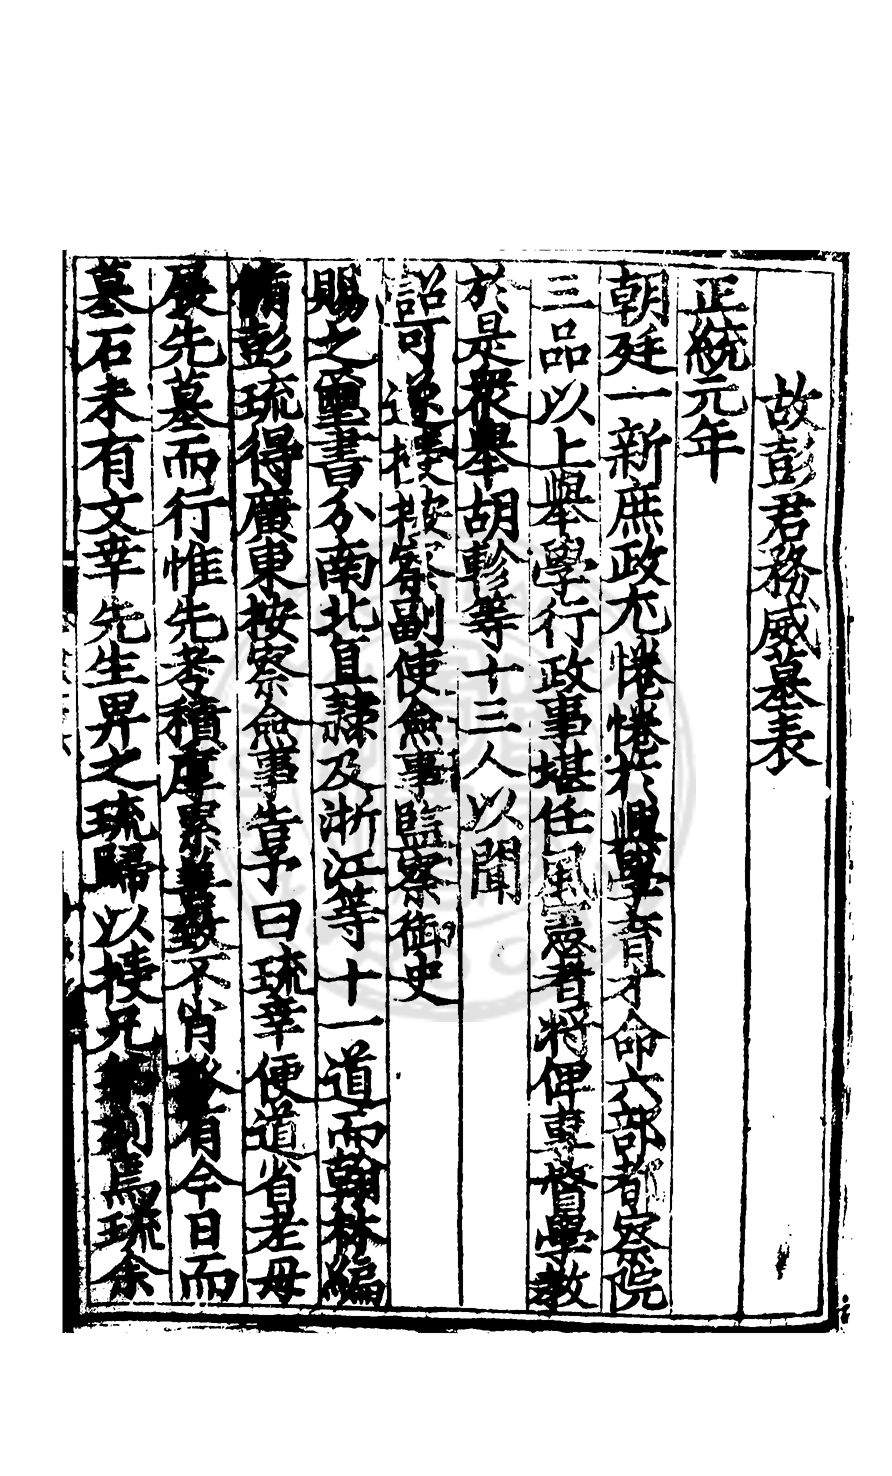 故彭君務威墓表
正統元年
朝廷一新庶政尤惓惓於興學育才命六部都察院
三品以上舉學行政事堪任風憲者將俾專督學教
於是衆舉胡軫等十三人以聞
詔可遂授按察副使僉事監察御史
賜之璽書分南北直隸及浙江等十一道而翰林編
脩彭琉得廣東按察僉事告予曰琉幸便道省老母
展先墓而行惟先考積厚累善致不肖琉有今日而
墓石未有文幸先生畀之琉歸以授兄弟刻焉琉余